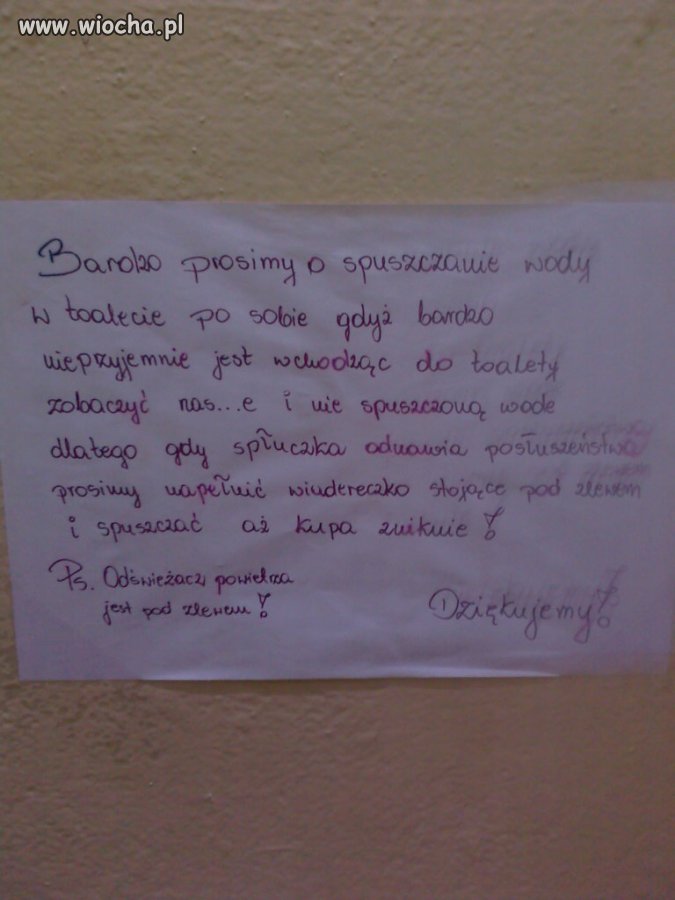 www.wiocha.pl
Bardzo prosimy o spuszczanie wody
w toalecie po sobie gdyż bardzo
nieprzyjemnie jest wchodząc do toalety
zobaczyć nas...e i nie spuszczoną wode
dlatego gdy spłuczka odmawia posłuszeństwa
prosimy napełnić wiadereczko stojące pod zlewem
i spuszczać aż kupa zniknie!
Ps. Odświeżacz powietrza
jest pod zlewem!
Dziękujemy!